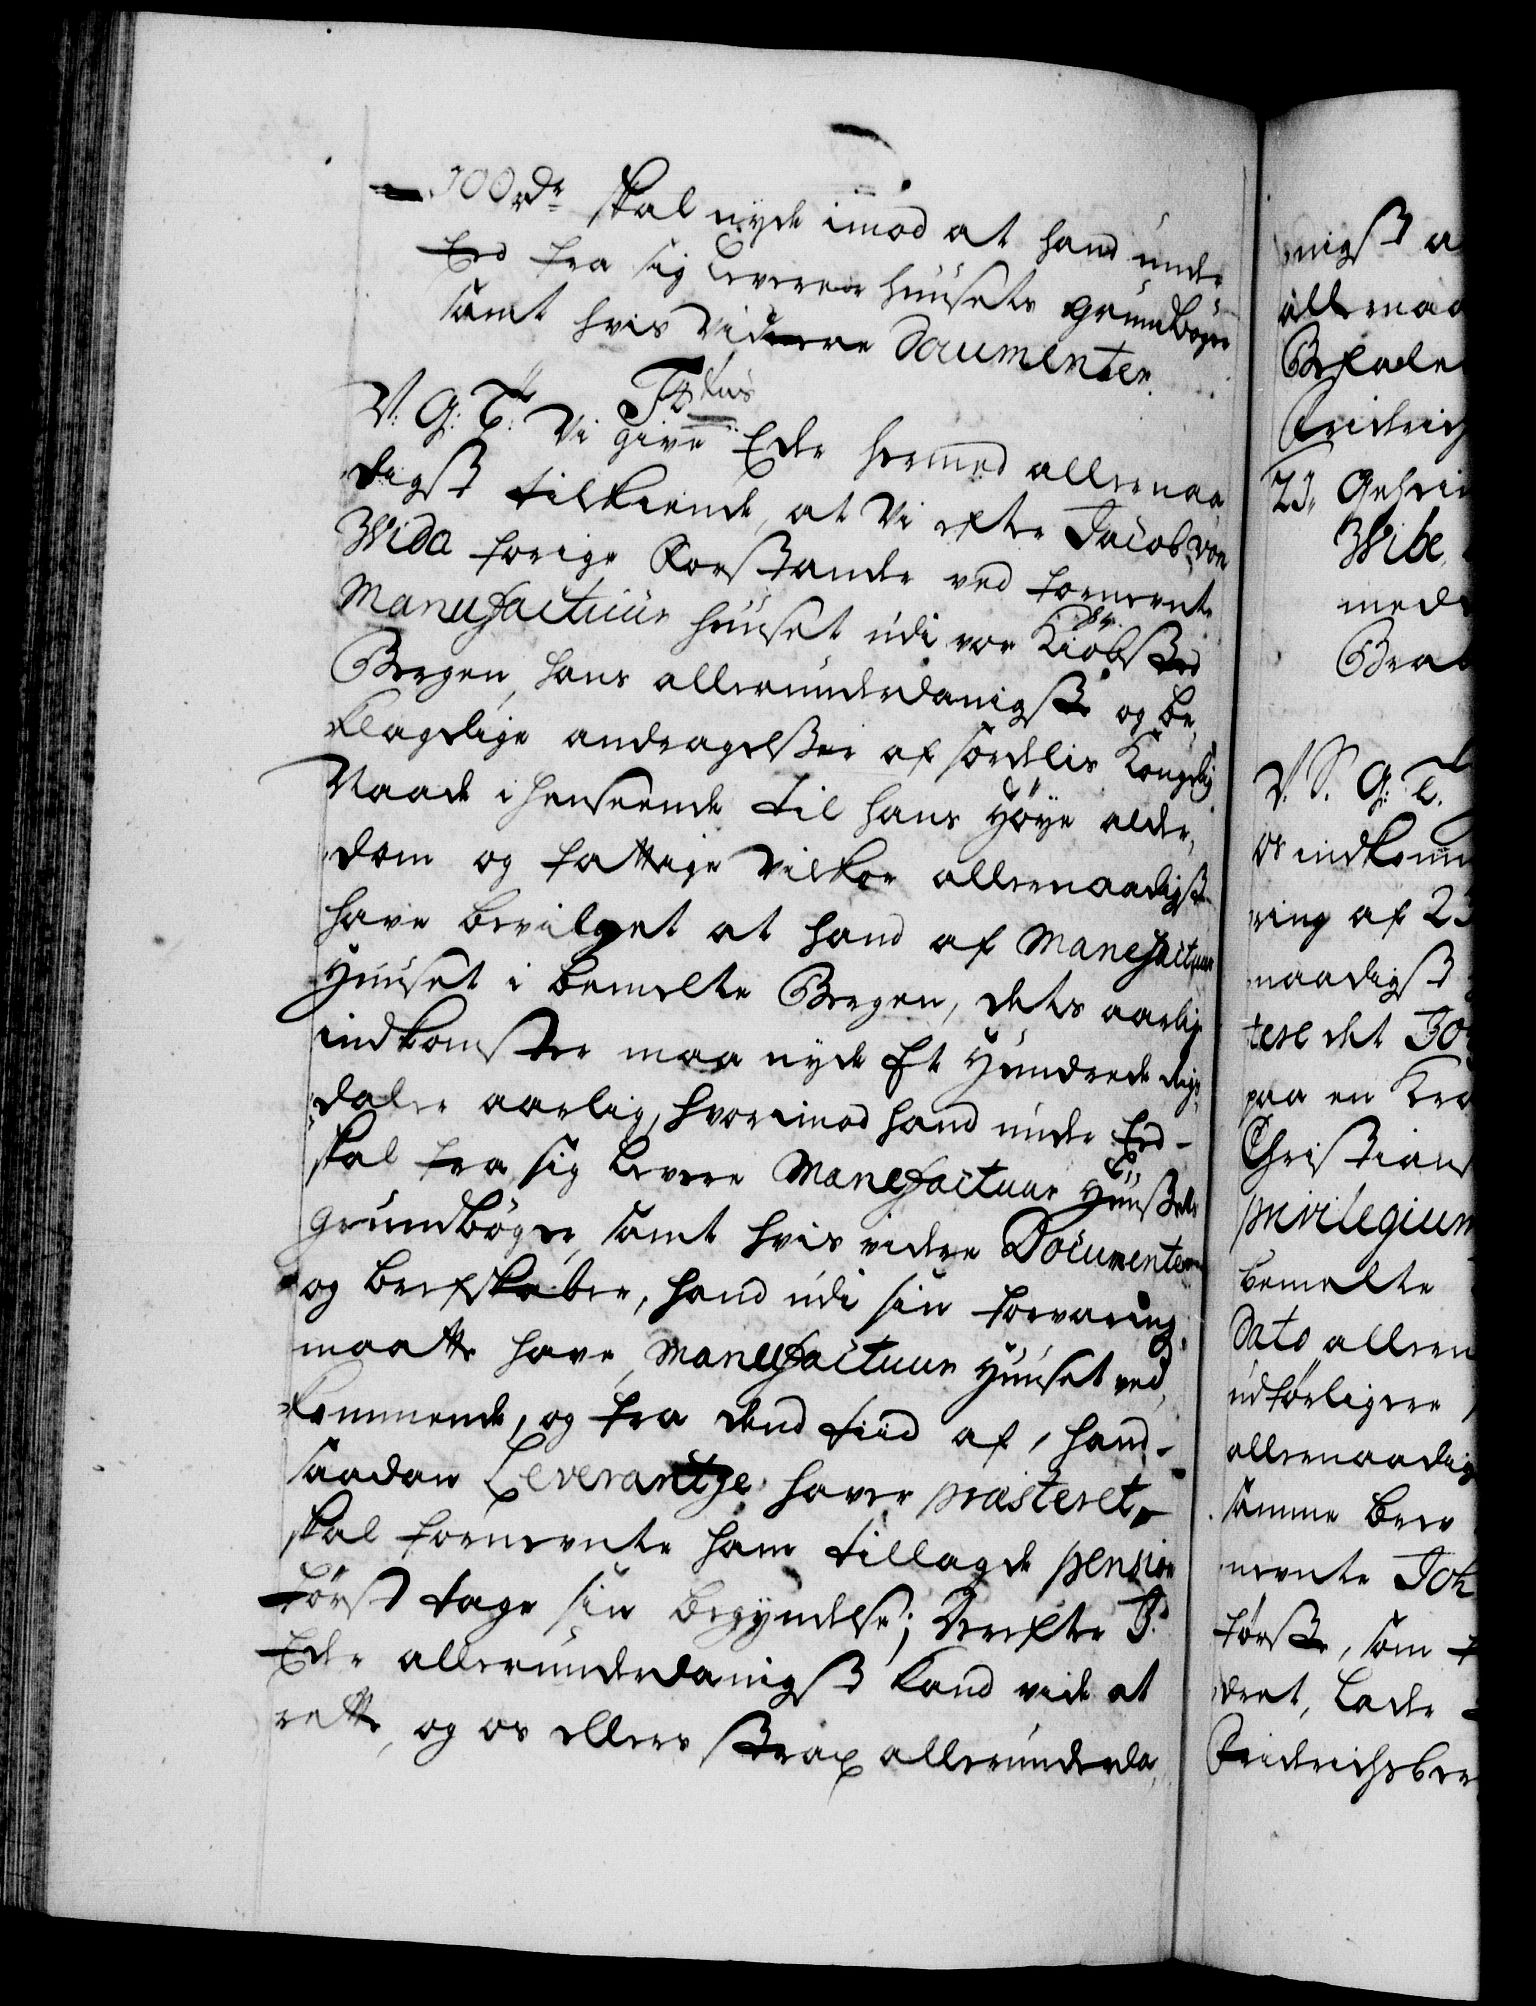 100 rdr skal nyde imod at hand under
Eed fra sig leverer huusets grundbøger
samt hvis videre Documenter.
F4tus
V: G: T: Vi give Eder hermed allernaa,
digst tilkiende, at Vi efter Jacob von
Wida forige Forstander ved fornevnte
Manufactuur huuset udi vor Kiøbsted
Bergen, hans allerunderdanigste og be,
klagelige andragelser af sørdelis Kongelig
Naade i henseende til hans Høye alder,
dom og fattige Vilkor allernaadigst
have bevilget at hand af Manefactuur
Huuset i bemelte Bergen, dets aarlige
indkomster maa nyde Et Hundrede Rigs
daler aarlig, hvorimod hand under Eed
skal fra sig levere Manefactuur Huusets
grundbøger, samt hvis videre Documenter
og brefskaber, hand udi sin forvaring
maatte have, Manufactuur Huuset ved,
kommende, og fra dend tiid af, hand
saadan Leverantze haver præsteret,
skal fornevnte ham tillagde pension
først tage sin begyndelse; Derefter I
Eder allerunderdanigst kand vide at
rette, og os ellers strax allerunderda,
nigst a
allernaa
Befale
Fridrich
23. Gehei
Wibe
med
Bra
V. S. G: T.
os indkom
ring af 23
naadigst
tere det Jo
paa en Kra
Christians
privilegium
bemelte
Dato allern
udførligere
allernaadig
samme brev
nevnte Joh
første, som
dret, Lade
Fridrichsber